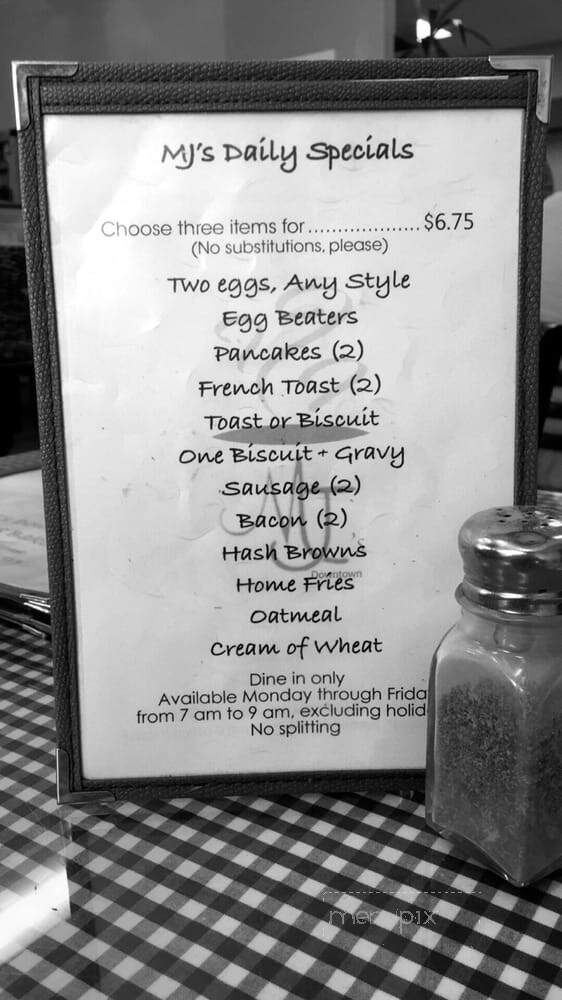 MJ's Daily Specials
Choose three items for...................$6.75
(No substitutions, please)
Two eggs, Any Style
Egg Beaters
Pancakes (2)
French Toast (2)
Toast or Biscuit
One Biscuit + Gravy
Sausage (2)
Bacon (2)
Hash Browns
Home Fries
Oatmeal
Cream of Wheat
MJ's
Downtown
Dine in only
Available Monday through Frida
from 7 am to 9 am, excluding holid
No splitting
menupix